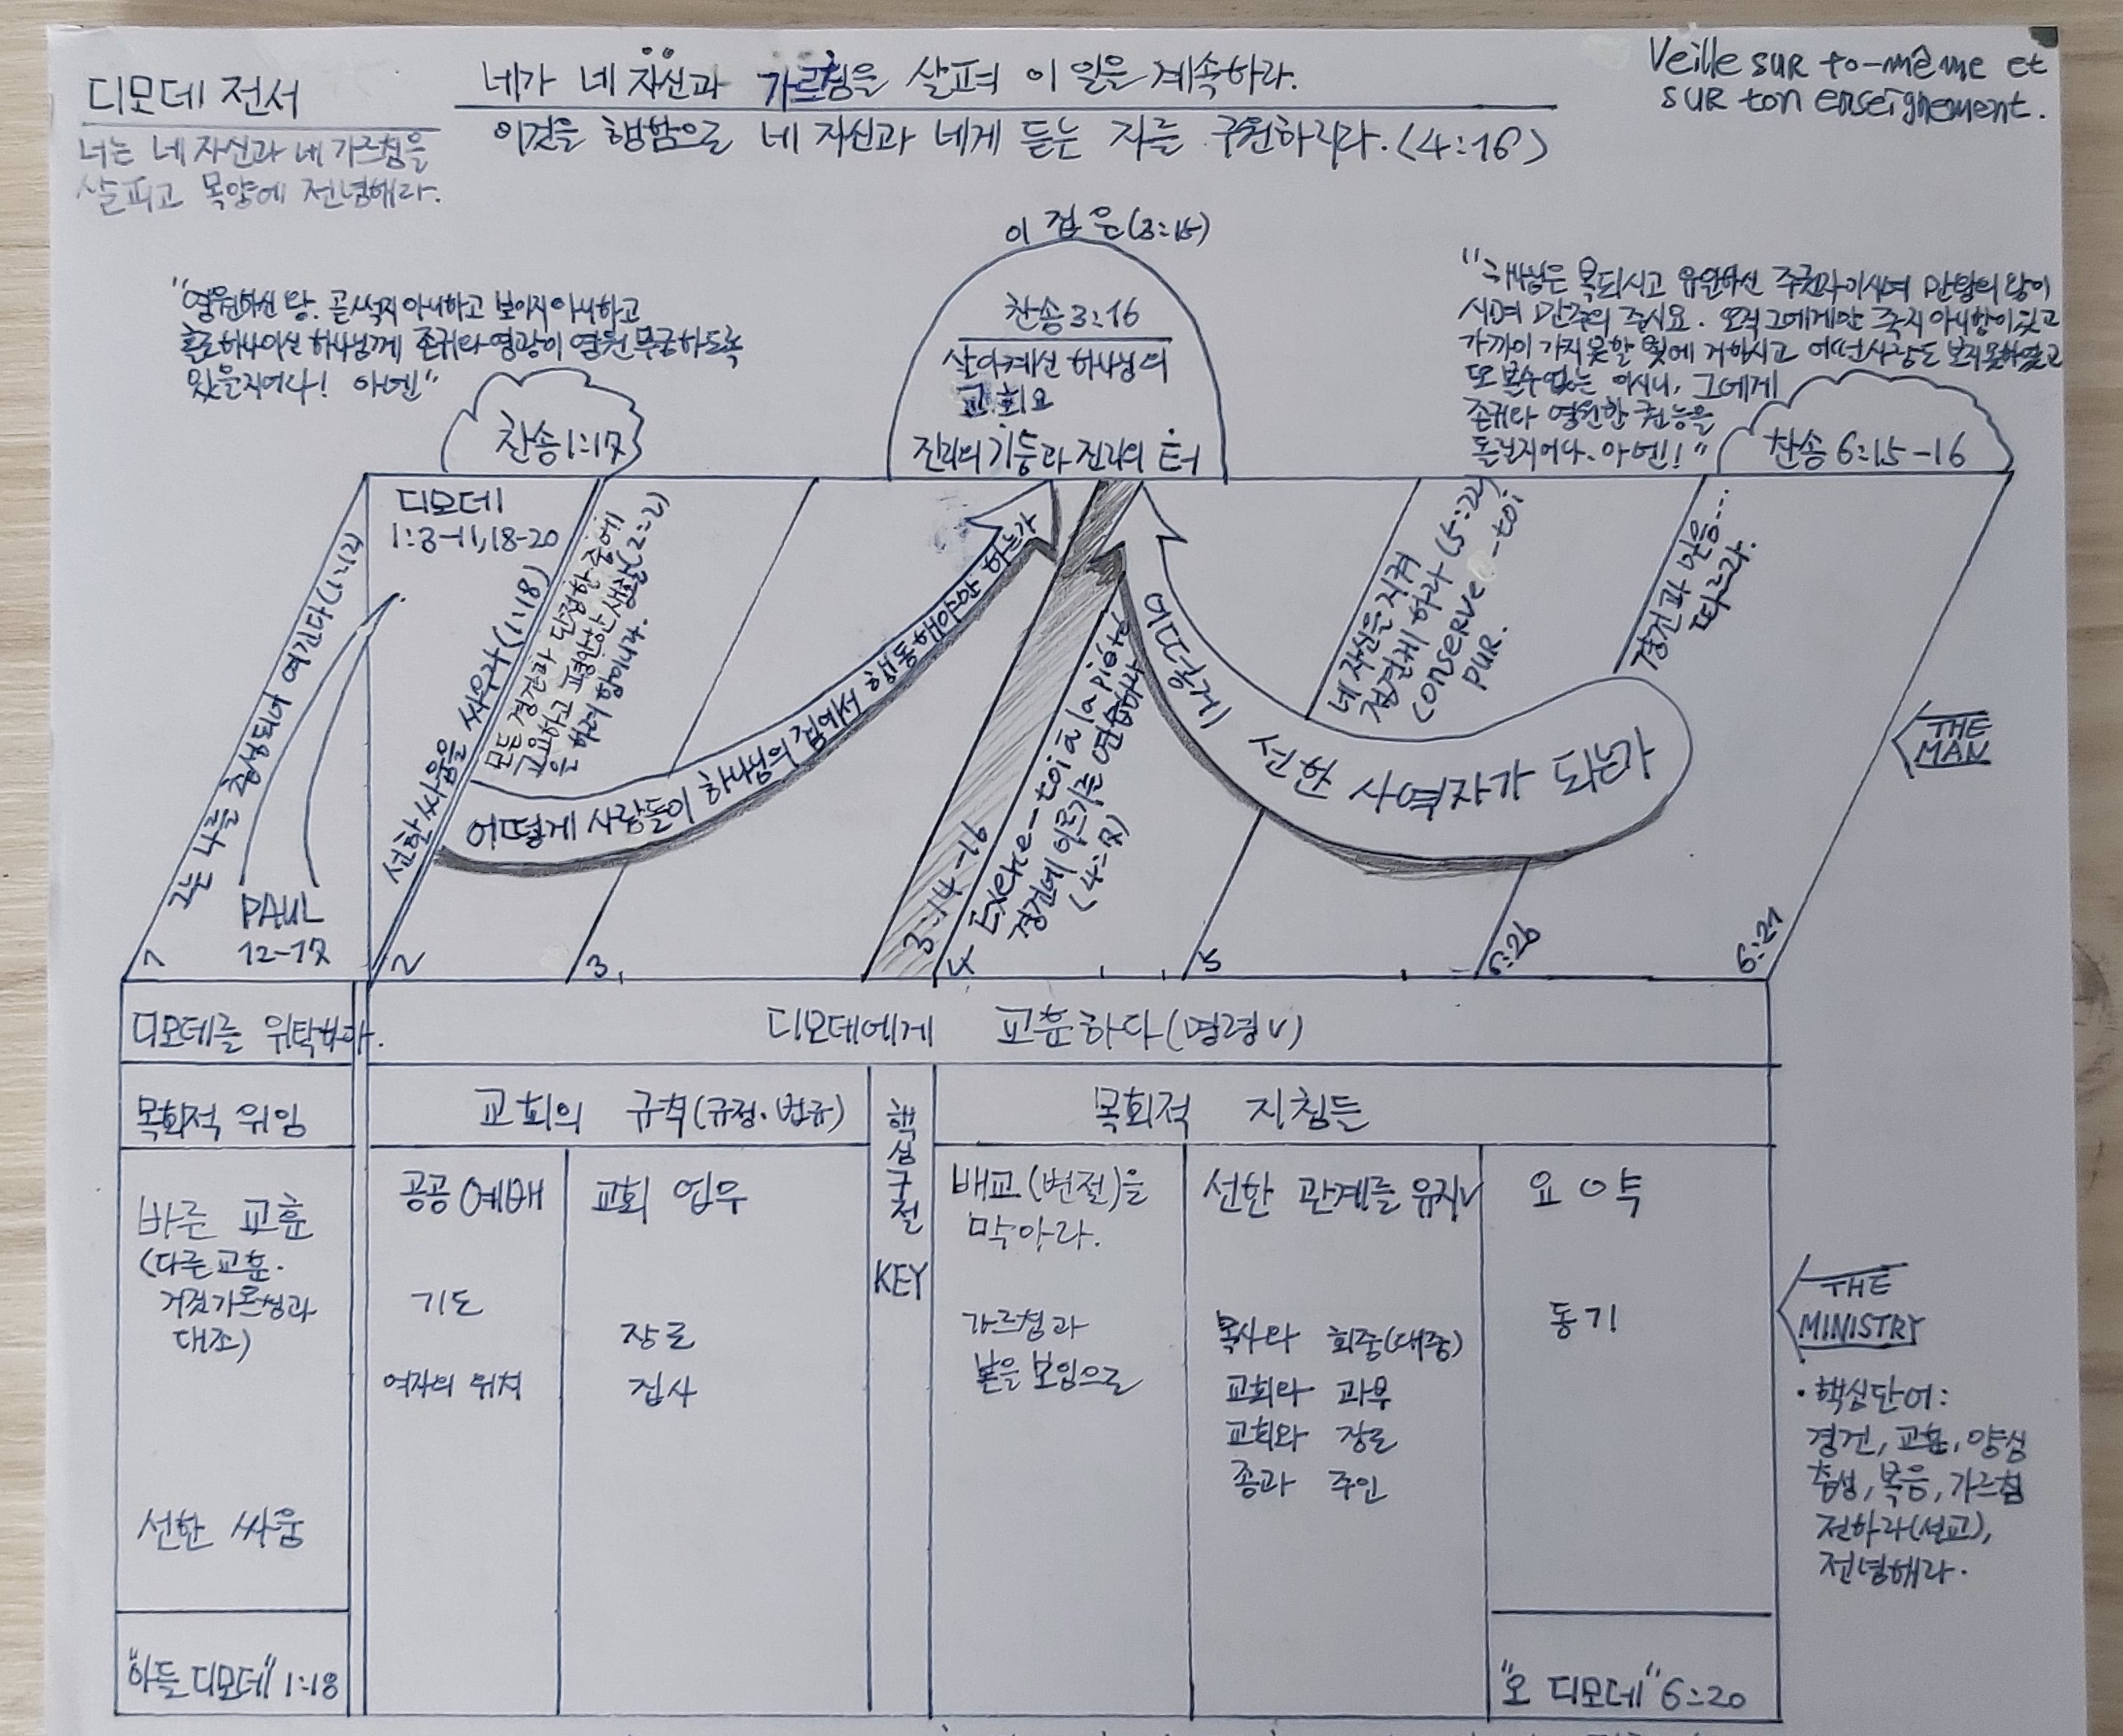 디모데 전서
너는 네 자신과 네 가르침을
살피고 목양에 전념해라.
네가 네 자신과 가르침을 살펴 이 일을 계속하라.
이것을 행함으로 네 자신과 네게 듣는 자를 구원하리라.(4:16)
Veille sur to-même et
sur ton enseignement.
"영원하신 왕. 곧 썩지 아니하고 보이지 아니하고
홀로 하나이신 하나님께 존귀와 영광이 영원 무궁하도록
있을지어다! 아멘"
찬송 1:17
이 집은(3:15)
찬송 3:16
살아계신 하나님의
교회요
진리의 기둥과 진리의 터
"하나님은 복되시고 유일하신 주권자이시며 만왕의 왕이
시며 만주의 주시요. 오직 그에게만 죽지 아니함이 있고
가까이 가지 못할 빛에 거하시고 어떤 사람도 보지 못하였고
또 볼 수 없는 이시니, 그에게
존귀와 영원한 권능을
돌릴지어다. 아멘!"
찬송 6:15-16
그는 나를 충성되이 여긴다(1:12)
디모데
1:3-11, 18-20
PAUL
12-17
선한 싸움을 싸우라(1:18)
모든 경건과 단정한 중에
고요하고 평안한 생활(2:2)
을 하려 함이니라.
어떻게 사람들이 하나님의 집에서 행동해야만 하는가
3:14-16
Exerce-toi à la piété
경건에 이르기를 연습하라
(4:7)
어떻게 선한 사역자가 되는가
네 자신을 지켜
정결케 하라(5:22)
conserve-toi
pur.
경건과 믿음...
따르라.
THE
MAN
1
2
3
4
5
6:2b
6:21
디모데를 위탁하다.
디모데에게 교훈하다(명령v)
목회적 위임
교회의 규칙(규정·법규)
핵심구절
KEY
목회적 지침들
바른 교훈
(다른 교훈.
거짓 가르침과
대조)
선한 싸움
공공 예배
기도
여자의 위치
교회 업무
장로
집사
배교(변절)을
막아라.
가르침과
본을 보임으로
선한 관계를 유지v
목사와 회중(대중)
교회와 과부
교회와 장로
종과 주인
요약
동기
THE
MINISTRY
· 핵심단어:
경건, 교훈, 양심
충성, 복음, 가르침
전하라(선교),
전념해라.
"아들 디모데" 1:18
"오 디모데" 6:20